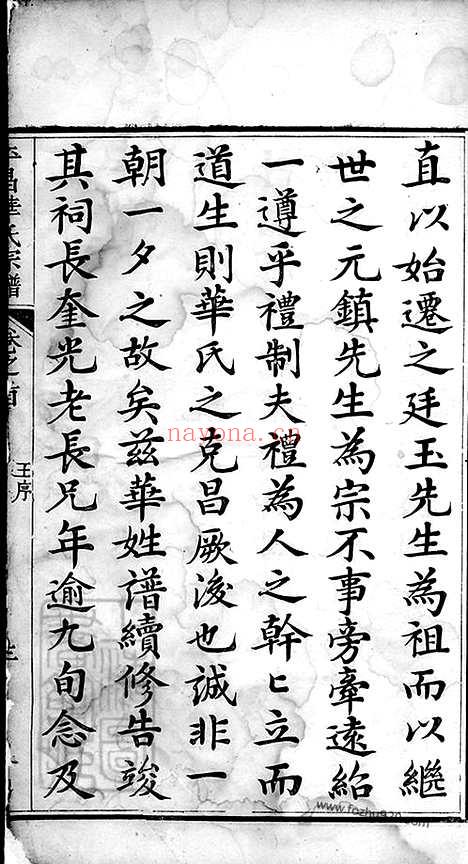 直以始遷之廷玉先生為祖而以繼
世之元鎮先生為宗不事旁牽遠紹
一遵乎禮制夫禮為人之幹匕立而
道生則華氏之克昌厥後也誠非一
朝一夕之故矣茲華姓譜續修告竣
其祠長奎光老長兄年逾九旬念及
昌華氏宗譜
卷之首
王序
nayona.cn
www.fozhu920.com